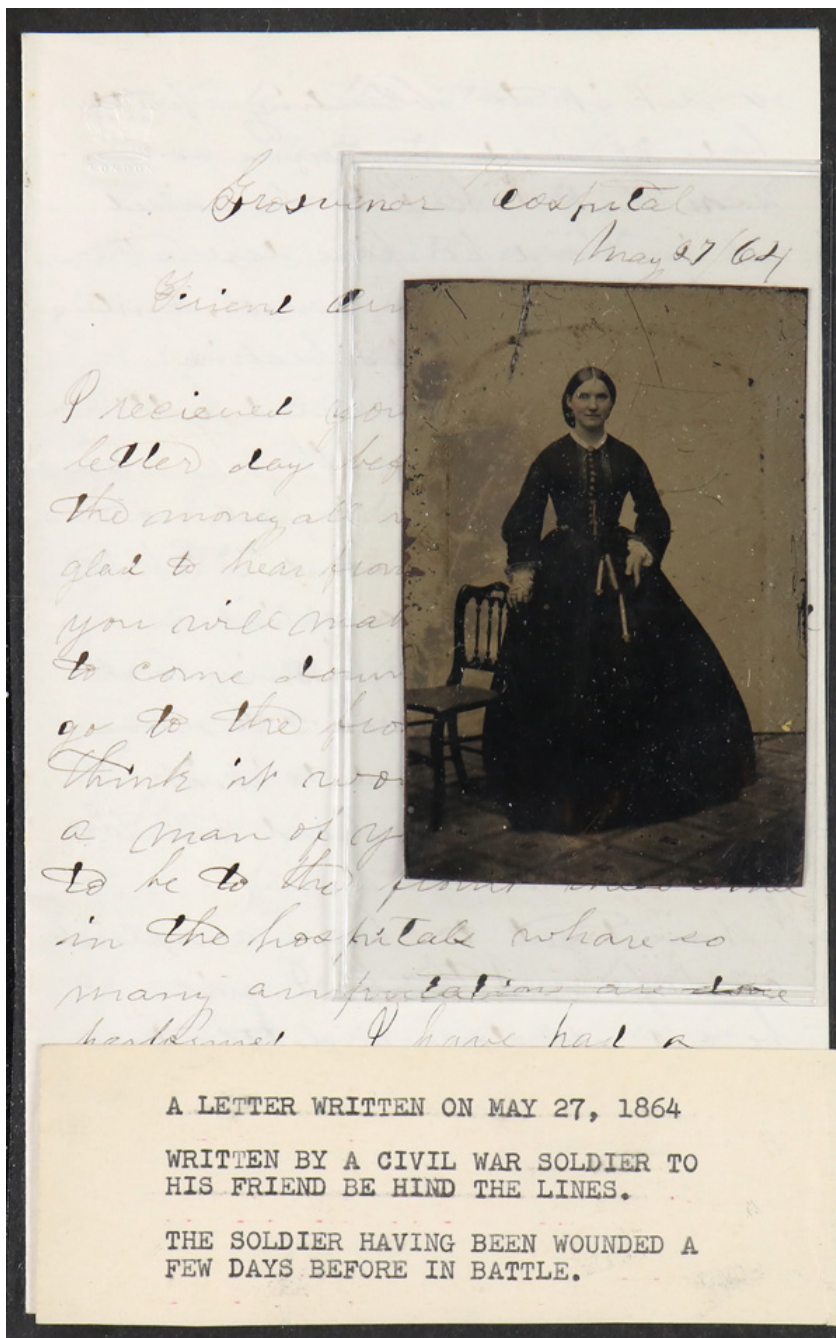 Grosvenor Hospital
May 27/64
Friend
I recieved
letter day
the money all
glad to hear from
you will
to come down
go to the
think it
a man of
to be to the front
in the hospitals whare so
many amputations are done
I have had a
A LETTER WRITTEN ON MAY 27, 1864
WRITTEN BY A CIVIL WAR SOLDIER TO
HIS FRIEND BE HIND THE LINES.
THE SOLDIER HAVING BEEN WOUNDED A
FEW DAYS BEFORE IN BATTLE.